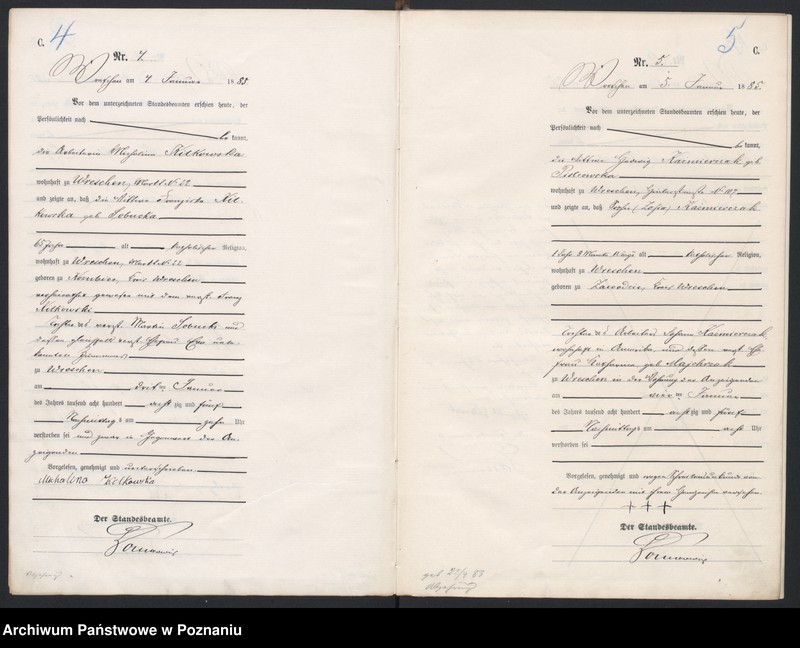 C. 4
Nr. 4.
Wreschen am 4 Januar 1885
Vor dem unterzeichneten Standesbeamten erschien heute, der
Persönlichkeit nach
bekannt,
die Arbeiterin Kitkowska
wohnhaft zu Wreschen, Markt No 22
und zeigte an, daß die Wittwe Franziska Kit-
kowska geb Sobucka
65 Jahre alt katholischer Religion,
wohnhaft zu Wreschen, Markt No 22
geboren zu Kreis Wreschen
verheirathet gewesen mit dem verst. Franz
Kitkowski
Tochter des verst. Martin Sobucki und
dessen verst. Ehefrau Eva unbe-
kannten
zu Wreschen
am dritten Januar
des Jahres tausend acht hundert achtzig und fünf
Nachmittags um zehn Uhr
verstorben sei und zwar in Gegenwart der An-
zeigenden
Vorgelesen, genehmigt und unterschrieben
Kitkowska
Der Standesbeamte.
5 C.
Nr. 5.
Wreschen am 5 Januar 1885.
Vor dem unterzeichneten Standesbeamten erschien heute, der
Persönlichkeit nach
bekannt,
die Wittwe Hedwig Kaźmierczak geb
wohnhaft zu Wreschen, No 107
und zeigte an, daß Sophie (Zofia) Kaźmierczak
1 Jahr 2 Monate alt katholischer Religion,
wohnhaft zu Wreschen
geboren zu Zawodzie, Kreis Wreschen
Tochter des Arbeiters Johann Kaźmierczak,
wohnhaft in Amerika, und dessen verst Ehe-
frau Katharina geb Majchrzak
zu Wreschen in der Wohnung der Anzeigenden
am vierten Januar
des Jahres tausend acht hundert achtzig und fünf
Nachmittags um acht Uhr
verstorben sei
Vorgelesen, genehmigt und wegen Schreibensunkunde von
der Anzeigenden mit ihrem Handzeichen versehen
+++
Der Standesbeamte.
Archiwum Państwowe w Poznaniu